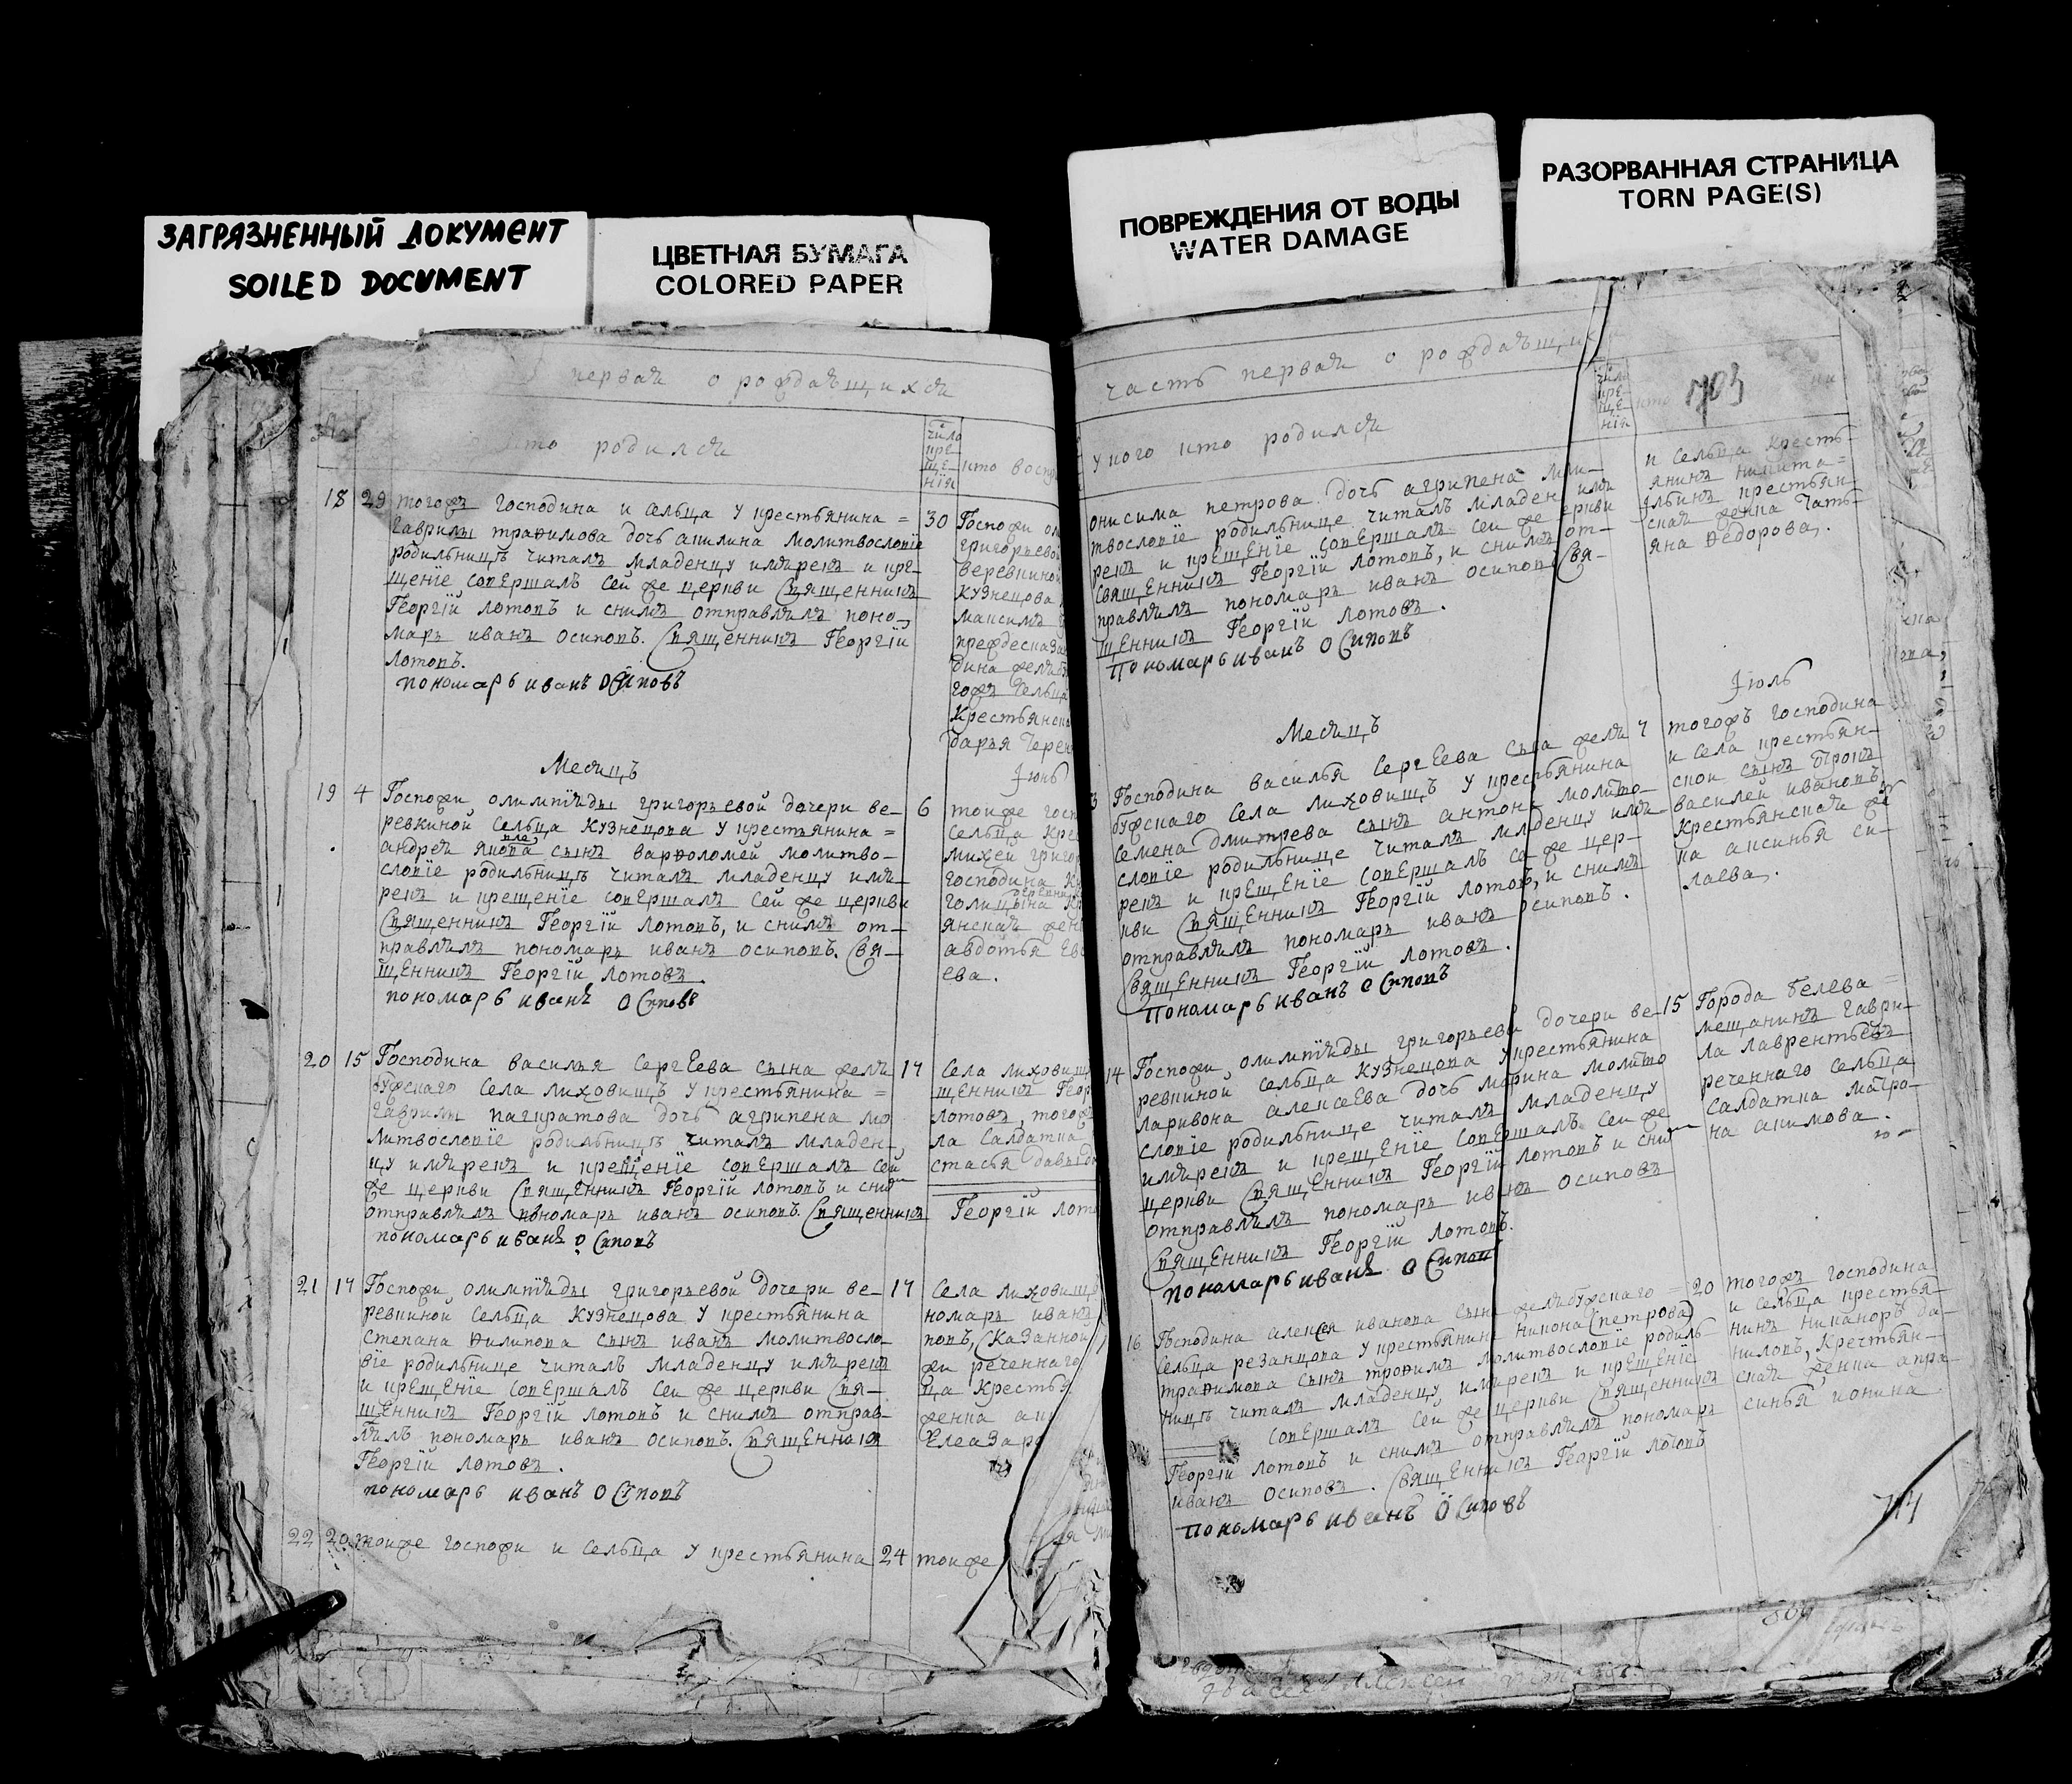 ЗАГРЯЗНЕННЫЙ ДОКУМЕНТ
SOILED DOCUMENT
ЦВЕТНАЯ БУМАГА
COLORED PAPER
ПОВРЕЖДЕНИЯ ОТ ВОДЫ
WATER DAMAGE
РАЗОРВАННАЯ СТРАНИЦА
TORN PAGE(S)
первая о рождающихся
кто родился
число
кре
ще
нїя
кто воспр
18 29 тогожъ господина и сельца у крестьянина =
гаврилы трафимова дочь акилина молитвословїе
родильницѣ читалъ младенцу имѧрекъ и кре-
щенїе совершалъ сей же церкви священникъ
Георгїй лотовъ и снимъ отправлялъ поно-
марь иванъ осиповъ. священникъ Георгїй
лотовъ.
пономарь иванъ осиповъ
30 Госпожи ол
григорьевой
веревкиной
кузнецова
максимъ
преждесказан
дина желяб
гожъ сельца
крестьянска
дарья Терен
Месяцъ
Jюнь
19 4 Госпожи олимпїяды григорьевой дочери ве-
ревкиной сельца кузнецова у крестьянина =
андрея якова сынъ варфоломей молитво-
словїе родильницѣ читалъ младенцу имя-
рекъ и крещенїе совершалъ сей же церкви
священникъ Георгїй лотовъ, и снимъ от-
правлялъ пономарь иванъ осиповъ. свя-
щенникъ Георгїй лотовъ.
пономарь иванъ осиповъ
6 тоиже госп
сельца кре
михей григор
господина к
голицына кр
янская жен
авдотья ев
ева.
20 15 Господина василья сергеева сына желя
бужскаго села лиховищъ у крестьянина =
гаврилы панкратова дочь агрипена мо
литвословїе родильницѣ читалъ младен-
цу имярекъ и крещенїе совершалъ сей
же церкви священникъ Георгїй лотовъ и сни
отправлялъ пономарь иванъ осиповъ. священникъ
пономарь иванъ осиповъ
17 села лиховищ
щенникъ Геор
лотовъ, тогожъ
ла салдатка
стасья давыдо
Георгїй лото
21 17 Госпожи олимпїяды григорьевой дочери ве-
ревкиной сельца кузнецова у крестьянина
степана филипова сынъ иванъ молитвосло-
вїе родильнице читалъ младенцу имярекъ
и крещенїе совершалъ сеи же церкви свя-
щенникъ Георгїй лотовъ и снимъ отправ-
лялъ пономарь иванъ осиповъ. священникъ
Георгїй лотовъ.
пономарь иванъ осиповъ
17 села лиховищ
номарь иванъ
повъ, сказанной
жи реченнаго
ца крестья
женка аку
елеазаро
22 20 тоиже госпожи и сельца у крестьянина 24 тоиже
часть первая о рождающихс
у кого кто родился
число
кре-
ще-
нїя
кто
703
онисима петрова дочь агрипена мли-
твословїе родильнице читалъ младен имя
рекъ и крещенїе совершалъ сеи же церкви
священникъ Георгїй лотовъ, и снимъ от-
правлялъ пономарь иванъ осиповъ свя-
щенникъ Георгїй лотовъ.
пономарь иванъ осиповъ
и сельца кресть-
янинъ никита =
Jльинъ крестьян-
ская женка тать-
яна федорова.
Месяцъ
Jюль
3 Господина василья сергеева сына желя
бужскаго села лиховищъ у крестьянина
семена дмитрева сынъ антонъ молитво-
словїе родильнице читалъ младенцу имя-
рекъ и крещенїе совершалъ се же цер-
кви священникъ Георгїй лотовъ, и снимъ
отправлялъ пономарь иванъ осиповъ.
священникъ Георгїй лотовъ.
пономарь иванъ осиповъ
7 тогожъ господина
и села крестьян-
скои сынъ
василеи ивановъ
крестьянская же
ка аксинья си-
лаева.
14 Госпожи олимпїяды григорьевы дочери ве-
ревкиной сельца кузнецова у крестьянина
ларивона алексеева дочь марина молитво
словїе родильнице читалъ младенцу
имярекъ и крещенїе совершалъ сеи же
церкви священникъ Георгїй лотовъ и сни
отправлялъ пономарь иванъ осиповъ
священникъ Георгїй лотовъ.
пономарь иванъ осиповъ
15 Города белева =
мещанинъ гаври-
ла лаврентьевъ
реченнаго сельца
салдатка матро-
на акимова.
16 Господина алексея иванова сына желябужскаго =
сельца резанцова у крестьянина никона (петрова)
трафимова сынъ трофимъ молитвословїе родиль-
ницѣ читалъ младенцу имярекъ и крещенїе
совершалъ сей же церкви священникъ
Георгїй лотовъ и снимъ отправлялъ пономарь
иванъ осиповъ. священникъ Георгїй лотовъ
пономарь иванъ осиповъ
20 тогожъ господина
и сельца крестья-
нинъ никаноръ да-
ниловъ, крестьян-
ская женка апра-
синья ионина